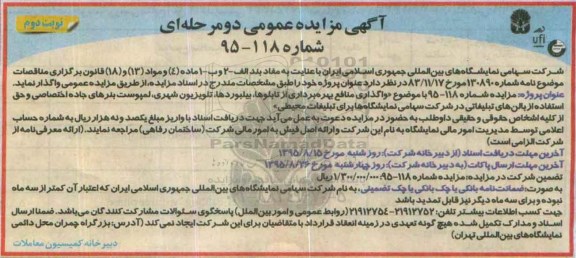 نوبت دوم
آگهی مزایده عمومی دو مرحله‌ای
شماره ۱۱۸-۹۵
ufi
شرکت سهامی نمایشگاه‌های بین‌المللی جمهوری اسلامی ایران با عنایت به مفاد بند الف-۲ و ب-۱ ماده (٤) و مواد (13) و (18) قانون برگزاری مناقصات
موضوع نامه شماره ۱۳۰۸۹۰ مورخ ۸۳/۱۱/۱۷ در نظر دارد عنوان پروژه خود را طبق مشخصات مندرج در اسناد مزایده، از طریق مزایده عمومی واگذار نماید.
عنوان پروژه: مزایده شماره ۱۱۸-۹۵ با موضوع «واگذاری منافع بهره‌برداری از تابلوها، بیلبوردها، تلویزیون شهری، لمپوست بنرهای جاده اختصاصی و حق
استفاده از بالن‌های تبلیغاتی در شرکت سهامی نمایشگاه‌ها برای تبلیغات محیطی»
از کلیه اشخاص حقوقی و حقیقی داوطلب به حضور در مزایده دعوت به عمل می‌آید جهت دریافت اسناد با واریز مبلغ یکصد و نه هزار ریال به شماره حساب
اعلامی توسط مدیریت امور مالی نمایشگاه به نام این شرکت و ارائه اصل فیش به امور مالی شرکت (ساختمان رفاهی) مراجعه نمایند. (ارائه معرفی‌نامه از
شرکت الزامی است)
آخرین مهلت دریافت اسناد (از دبیرخانه شرکت): روز شنبه مورخ ۱۳۹۵/۸/۱۵
آخرین مهلت ارسال پاکات (به دبیرخانه شرکت): روز چهارشنبه مورخ ۱۳۹۵/۸/۲۶
تضمین شرکت در مزایده: مزایده شماره ۱۱۸-۹۵-۱/۳۰۰/۰۰۰/۰۰۰ ریال
به صورت: ضمانت‌نامه بانکی یا چک بانکی یا چک تضمینی، به نام شرکت سهامی نمایشگاه‌های بین‌المللی جمهوری اسلامی ایران که اعتبار آن کمتر از سه ماه
نبوده و برای سه ماه دیگر نیز قابل تمدید باشد
جهت کسب اطلاعات بیشتر تلفن: ۲۱۹۱۲۷۵۲-۲۱۹۱۲۷۵۴ (روابط عمومی و امور بین‌الملل) پاسخگوی سئوالات مشارکت‌کنندگان می‌باشد. ضمنا ارسال
اسناد و مدارک تکمیل شده هیچ گونه تعهدی در زمینه انعقاد قرارداد با متقاضیان برای این شرکت ایجاد نمی‌کند (آدرس: بزرگراه چمران محل دائمی
نمایشگاه‌های بین‌المللی تهران)
دبیرخانه کمیسیون معاملات